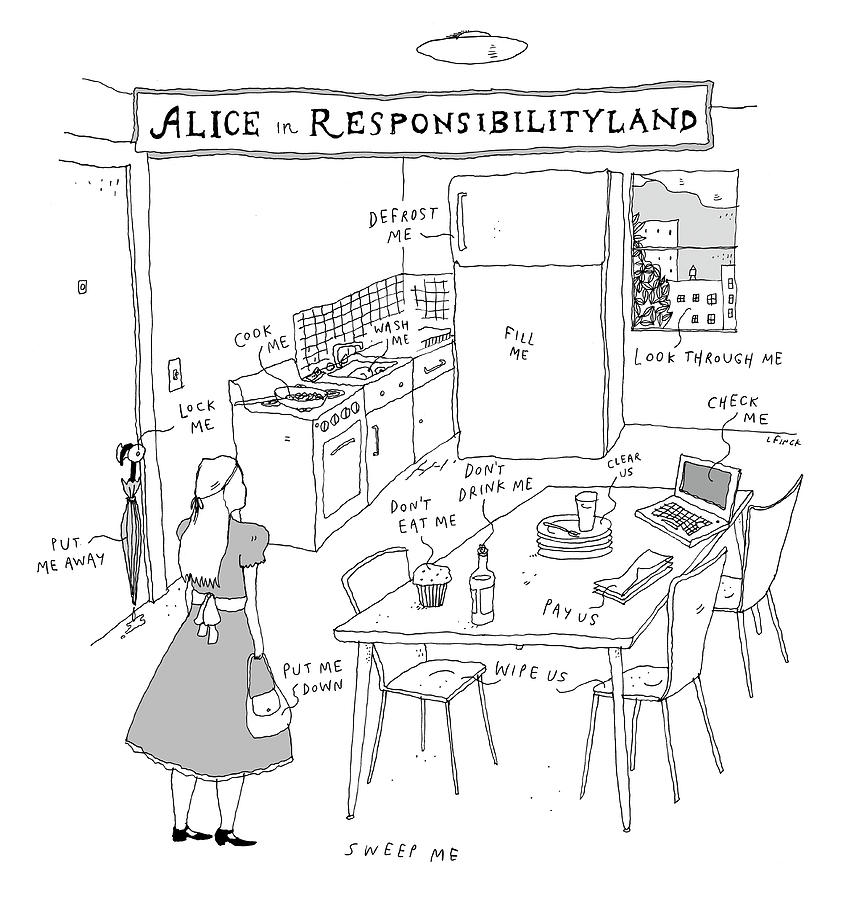 ALICE in RESPONSIBILITYLAND
DEFROST
ME
COOK
ME
WASH
ME
FILL
ME
LOOK THROUGH ME
LOCK
ME
CHECK
ME
L FINCK
CLEAR
US
DON'T
DRINK ME
DON'T
EAT ME
PUT
ME AWAY
PAY US
PUT ME
DOWN
WIPE US
SWEEP ME